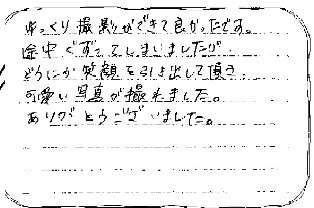 ゆっくり撮影ができて良かったです。
途中ぐずってしまいましたが
どうにか笑顔を引き出して頂き
可愛い写真が撮れました。
ありがとうございました。